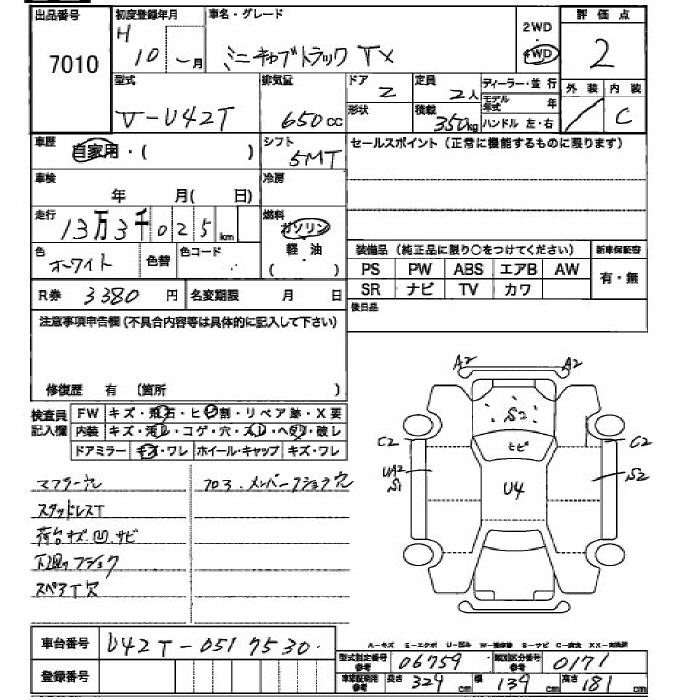 出品番号 初度登録年月 車名・グレード 2WD 評価点
7010 H 10 ～月 ミニキャブトラック TX 4WD 2
型式 排気量 ドア 2 定員 2人 ディーラー・並行 外装 内装
V-U42T 650cc 形状 積載 350kg モデル年式 年 C
ハンドル 左・右
車歴 自家用・( ) シフト 5MT セールスポイント(正常に機能するものに限ります)
車検 年 月( 日) 冷房
走行 13万3千025km 燃料 ガソリン
軽・油
( )
色 ホワイト 色替 色コード
装備品(純正品に限り○をつけてください) 新車保証書
PS PW ABS エアB AW 有・無
SR ナビ TV カワ
R券 3380円 名変期限 月 日 後日品
注意事項申告欄(不具合内容等は具体的に記入して下さい)
修復歴 有 (箇所 )
検査員記入欄 FW キズ・飛石・ヒビ割・リペア跡・X要
内装 キズ・汚れ・コゲ・穴・スレ・ヘタリ・破レ
ドアミラー キズ・ワレ ホイール・キャップ キズ・ワレ
A2 A2
S2
C2 ヒビ C2
UA2 S1 U4 S2
マフラー穴 フロア、メンバーフショク穴
スタッドレスT
荷台キズ凹サビ
下廻りフショク
スペアT欠
車台番号 U42T-0517530
A-キズ E-エクボ U-凹み W-補修跡 S-サビ C-腐食 XX-交換済
型式指定番号 06759 類別区分番号 0171
登録番号 車検証記載参考 長さ参考 324cm 横 139cm 高さ参考 181cm